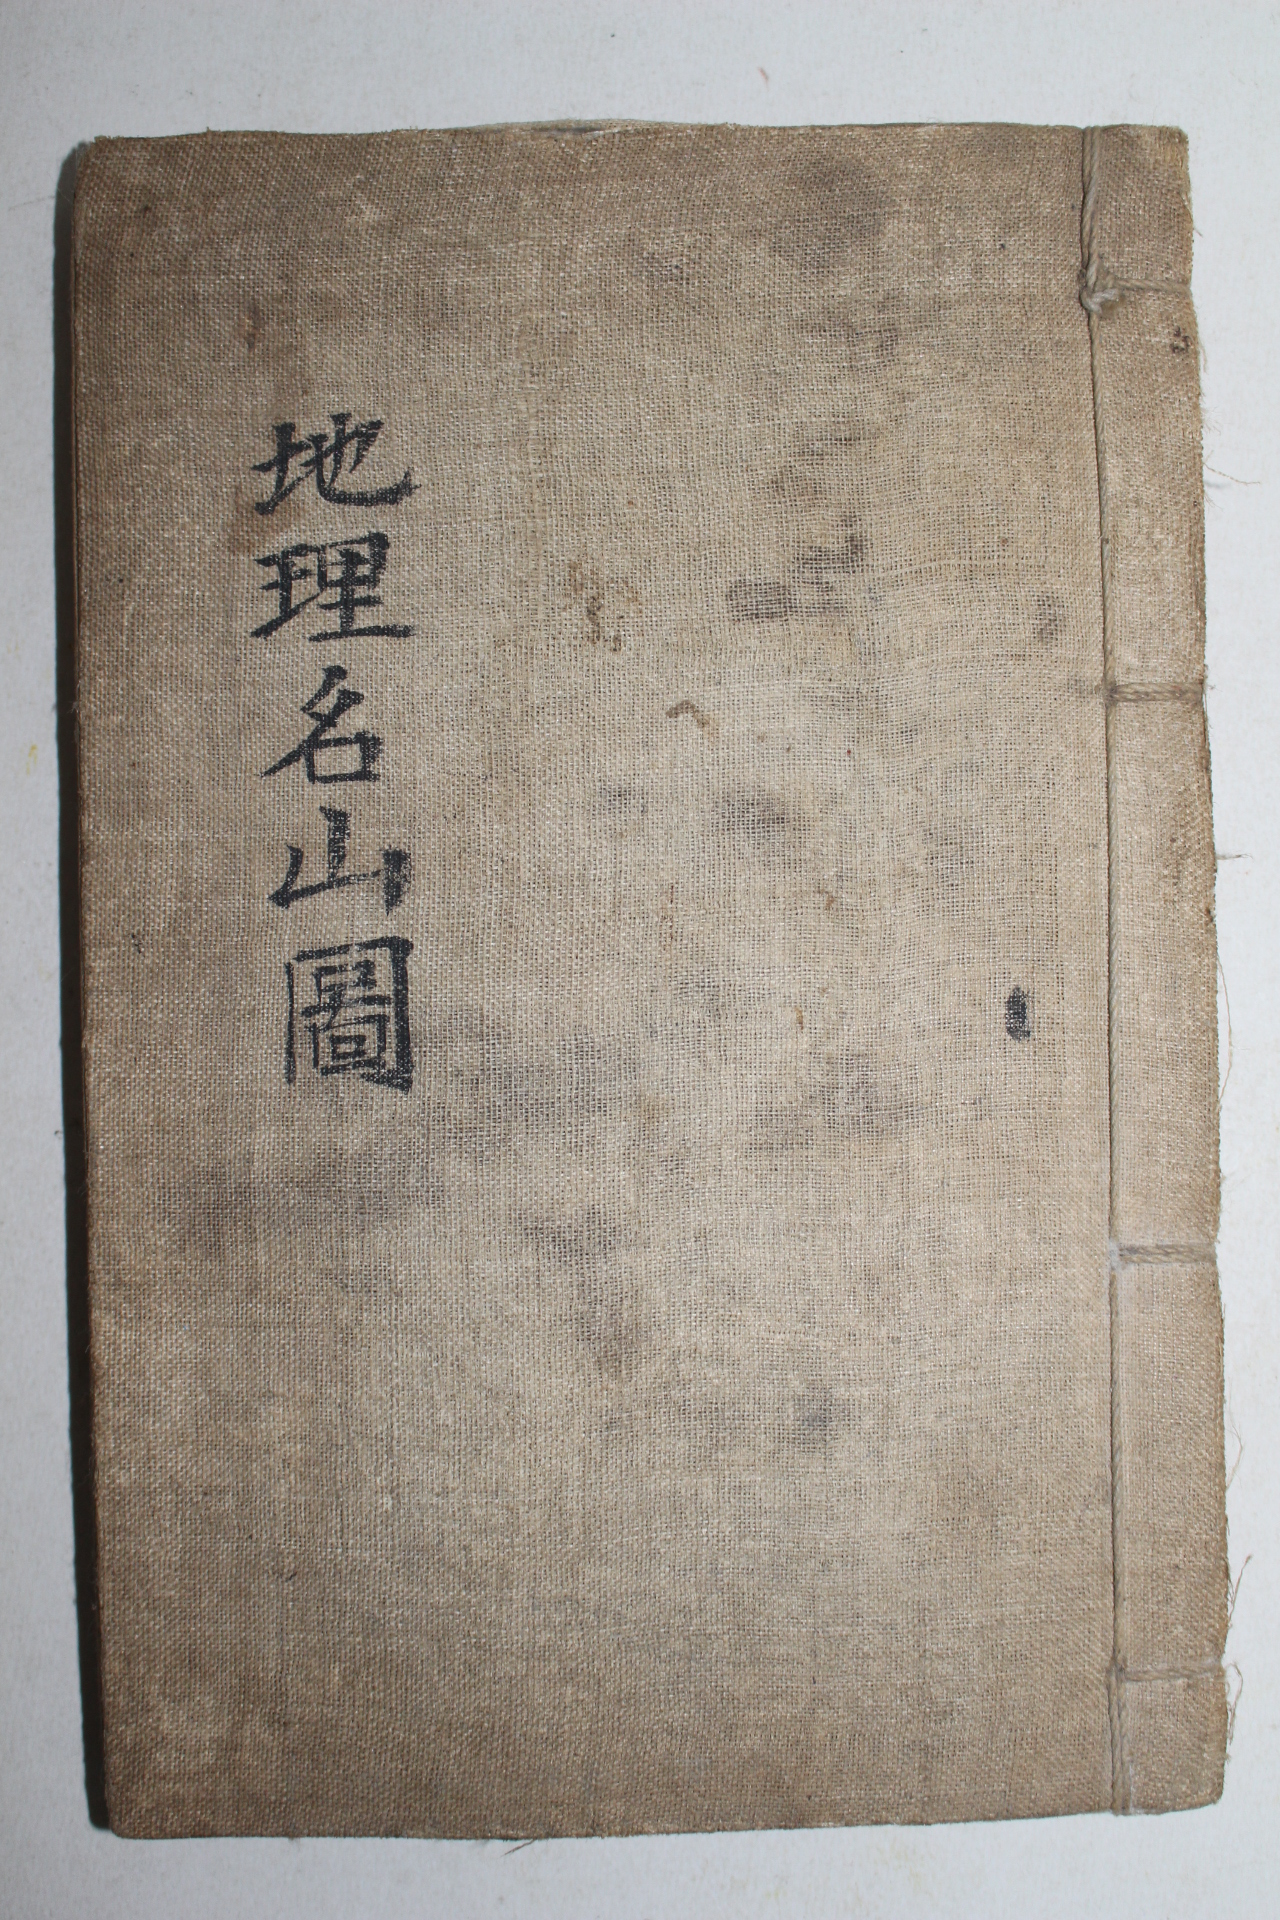 地理名山圖